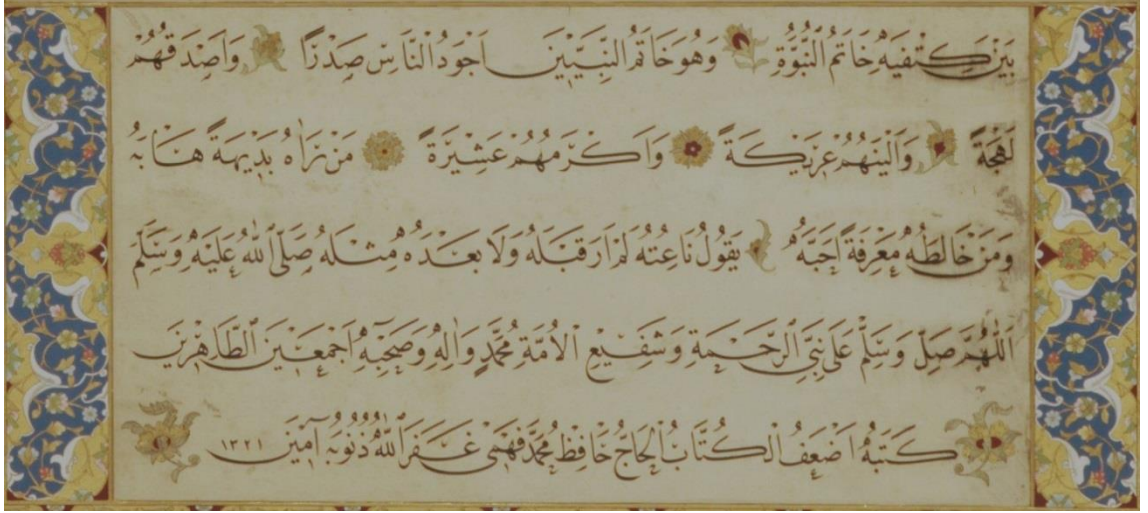 بَيْنَ كِتْفَيْهِ خَاتَمُ النُّبُوَّةِ وَهُوَ خَاتَمُ النَّبِيّٖينَ اَجْوَدُ النَّاسِ صَدْرًا وَاَصْدَقُهُمْ
لَهْجَةً وَاَلْيَنُهُمْ عَرٖيكَةً وَاَكْرَمُهُمْ عَشٖيرَةً مَنْ رَاٰهُ بَدٖيهَةً هَابَهُ
وَمَنْ خَالَطَهُ مَعْرِفَةً اَحَبَّهُ يَقُولُ نَاعِتُهُ لَمْ اَرَ قَبْلَهُ وَلَا بَعْدَهُ مِثْلَهُ صَلَّى اللّٰهُ عَلَيْهِ وَسَلَّمَ
اَللّٰهُمَّ صَلِّ وَسَلِّمْ عَلٰى نَبِيِّ الرَّحْمَةِ وَشَفٖيعِ الْاُمَّةِ مُحَمَّدٍ وَاٰلِهٖ وَصَحْبِهٖ اَجْمَعٖينَ الطَّاهِرٖينَ
كَتَبَهُ اَضْعَفُ الْكُتَّابِ الْحَاجُّ حَافِظْ مُحَمَّدْ فَهْمٖى غَفَرَ اللّٰهُ ذُنُوبَهُ اٰمٖينَ ١٣٢١